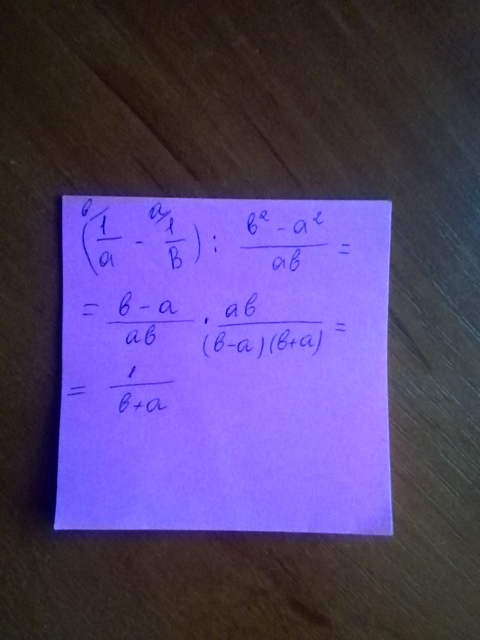 (ᵇ/ 1/a - ᵃ/ 1/B) : b² - a² / ab =
= b - a / ab · ab / (b-a)(b+a) =
= 1 / b+a